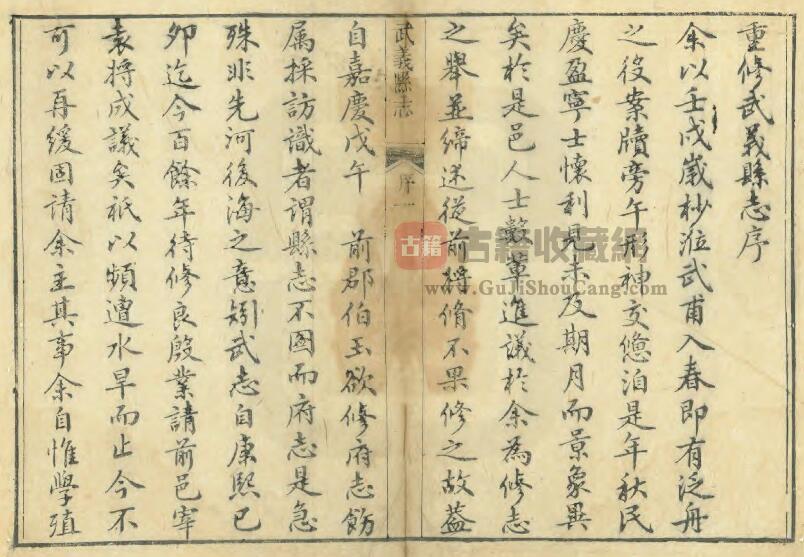 重修武義縣志序
余以壬戌歲杪涖武甫入春即有泛舟
之役案牘旁午形神交憊洎是年秋民
慶盈寧士懷利見未及期月而景象異
矣於是邑人士數輩進議於余為修志
之舉並述從前將脩不果修之故蓋
武義縣志 序一
自嘉慶戊午 前郡伯玉欲修府志飭
属採訪識者謂縣志不圖而府志是急
殊非先河後海之意矧武志自康熙己
卯迄今百餘年待修良殷業請前邑宰
袁將成議矣祇以頻遭水旱而止今不
可以再緩固請余主其事余自惟學殖
古籍
古籍收藏網
www.GuJiShouCang.com